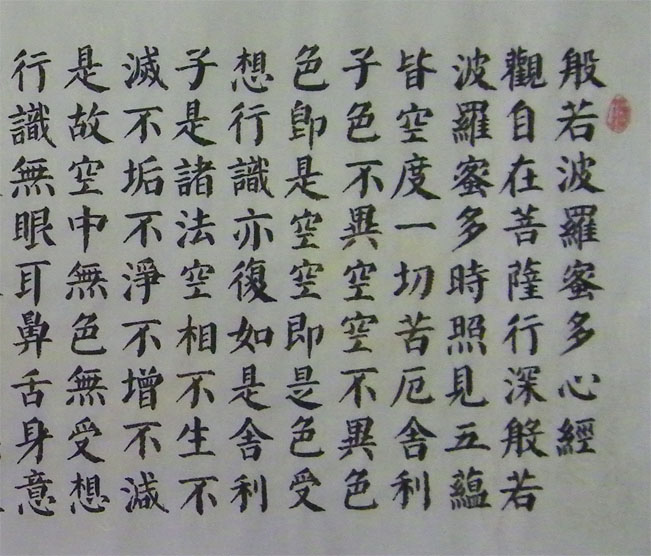 般若波羅蜜多心經
觀自在菩薩行深般若
波羅蜜多時照見五蘊
皆空度一切苦厄舍利
子色不異空空不異色
色即是空空即是色受
想行識亦復如是舍利
子是諸法空相不生不
滅不垢不淨不增不減
是故空中無色無受想
行識無眼耳鼻舌身意